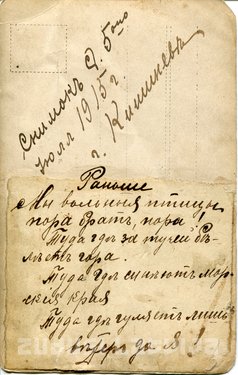 Снимокъ д. 5ого
юля 1915г.
г. Кишиневъ
Раньше
Мы вольныя птицы
пора братъ, пора!
Туда гдѣ за тучей бѣ-
лѣетъ гора.
Туда гдѣ синѣютъ мор-
скія края
Туда гдѣ гуляетъ лишь
вѣтеръ да я!